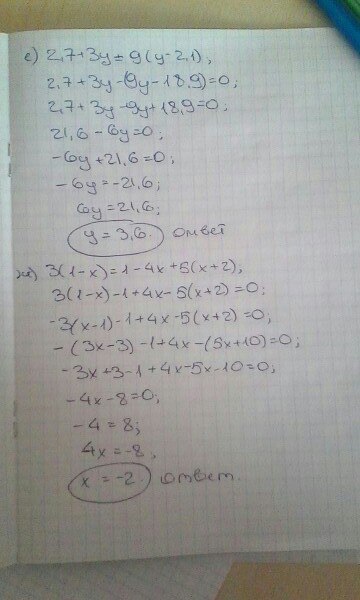 е) 2,7+3y=9(y-2,1);
2,7+3y-(9y-18,9)=0;
2,7+3y-9y+18,9=0;
21,6-6y=0;
-6y+21,6=0;
-6y=-21,6;
6y=21,6;
y=3,6. ответ
ж) 3(1-x)=1-4x+5(x+2);
3(1-x)-1+4x-5(x+2)=0;
-3(x-1)-1+4x-5(x+2)=0;
-(3x-3)-1+4x-(5x+10)=0;
-3x+3-1+4x-5x-10=0;
-4x-8=0;
-4=8;
4x=-8,
x=-2. ответ.